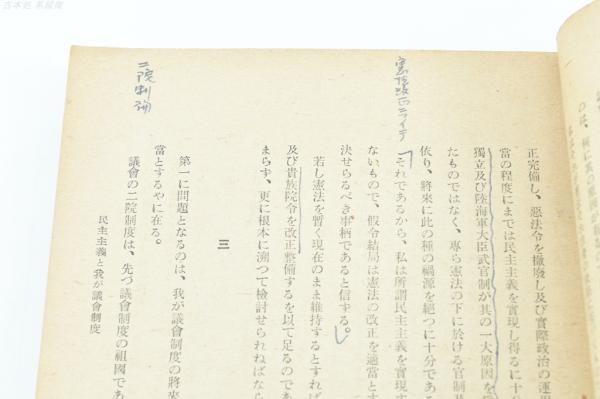 古本処 系統庵
正完備し、惡法令を撤廢し及び實際政治の運
當の程度にまでは民主主義を實現し得るに十
獨立及び陸海軍大臣武官制が其の一大原因を
たものではなく、專ら憲法の下に於ける官制及
依り、將來に此の種の禍源を絶つに十分である
それであるから、私は所謂民主主義を實現す
ないもので、假令結局は憲法の改正を適當とす
決せらるべき事柄であると信ずる。
若し憲法を暫く現在のまま維持するとすれば
及び貴族院令を改正整備するを以て足るのであ
まらず、更に根本に溯つて檢討せられねばなら
三
第一に問題となるのは、我が議會制度の將來
當とするやに在る。
議會の二院制度は、先づ議會制度の祖國であ
民主主義と我が議會制度
憲法改正ニツイテ
二院制論